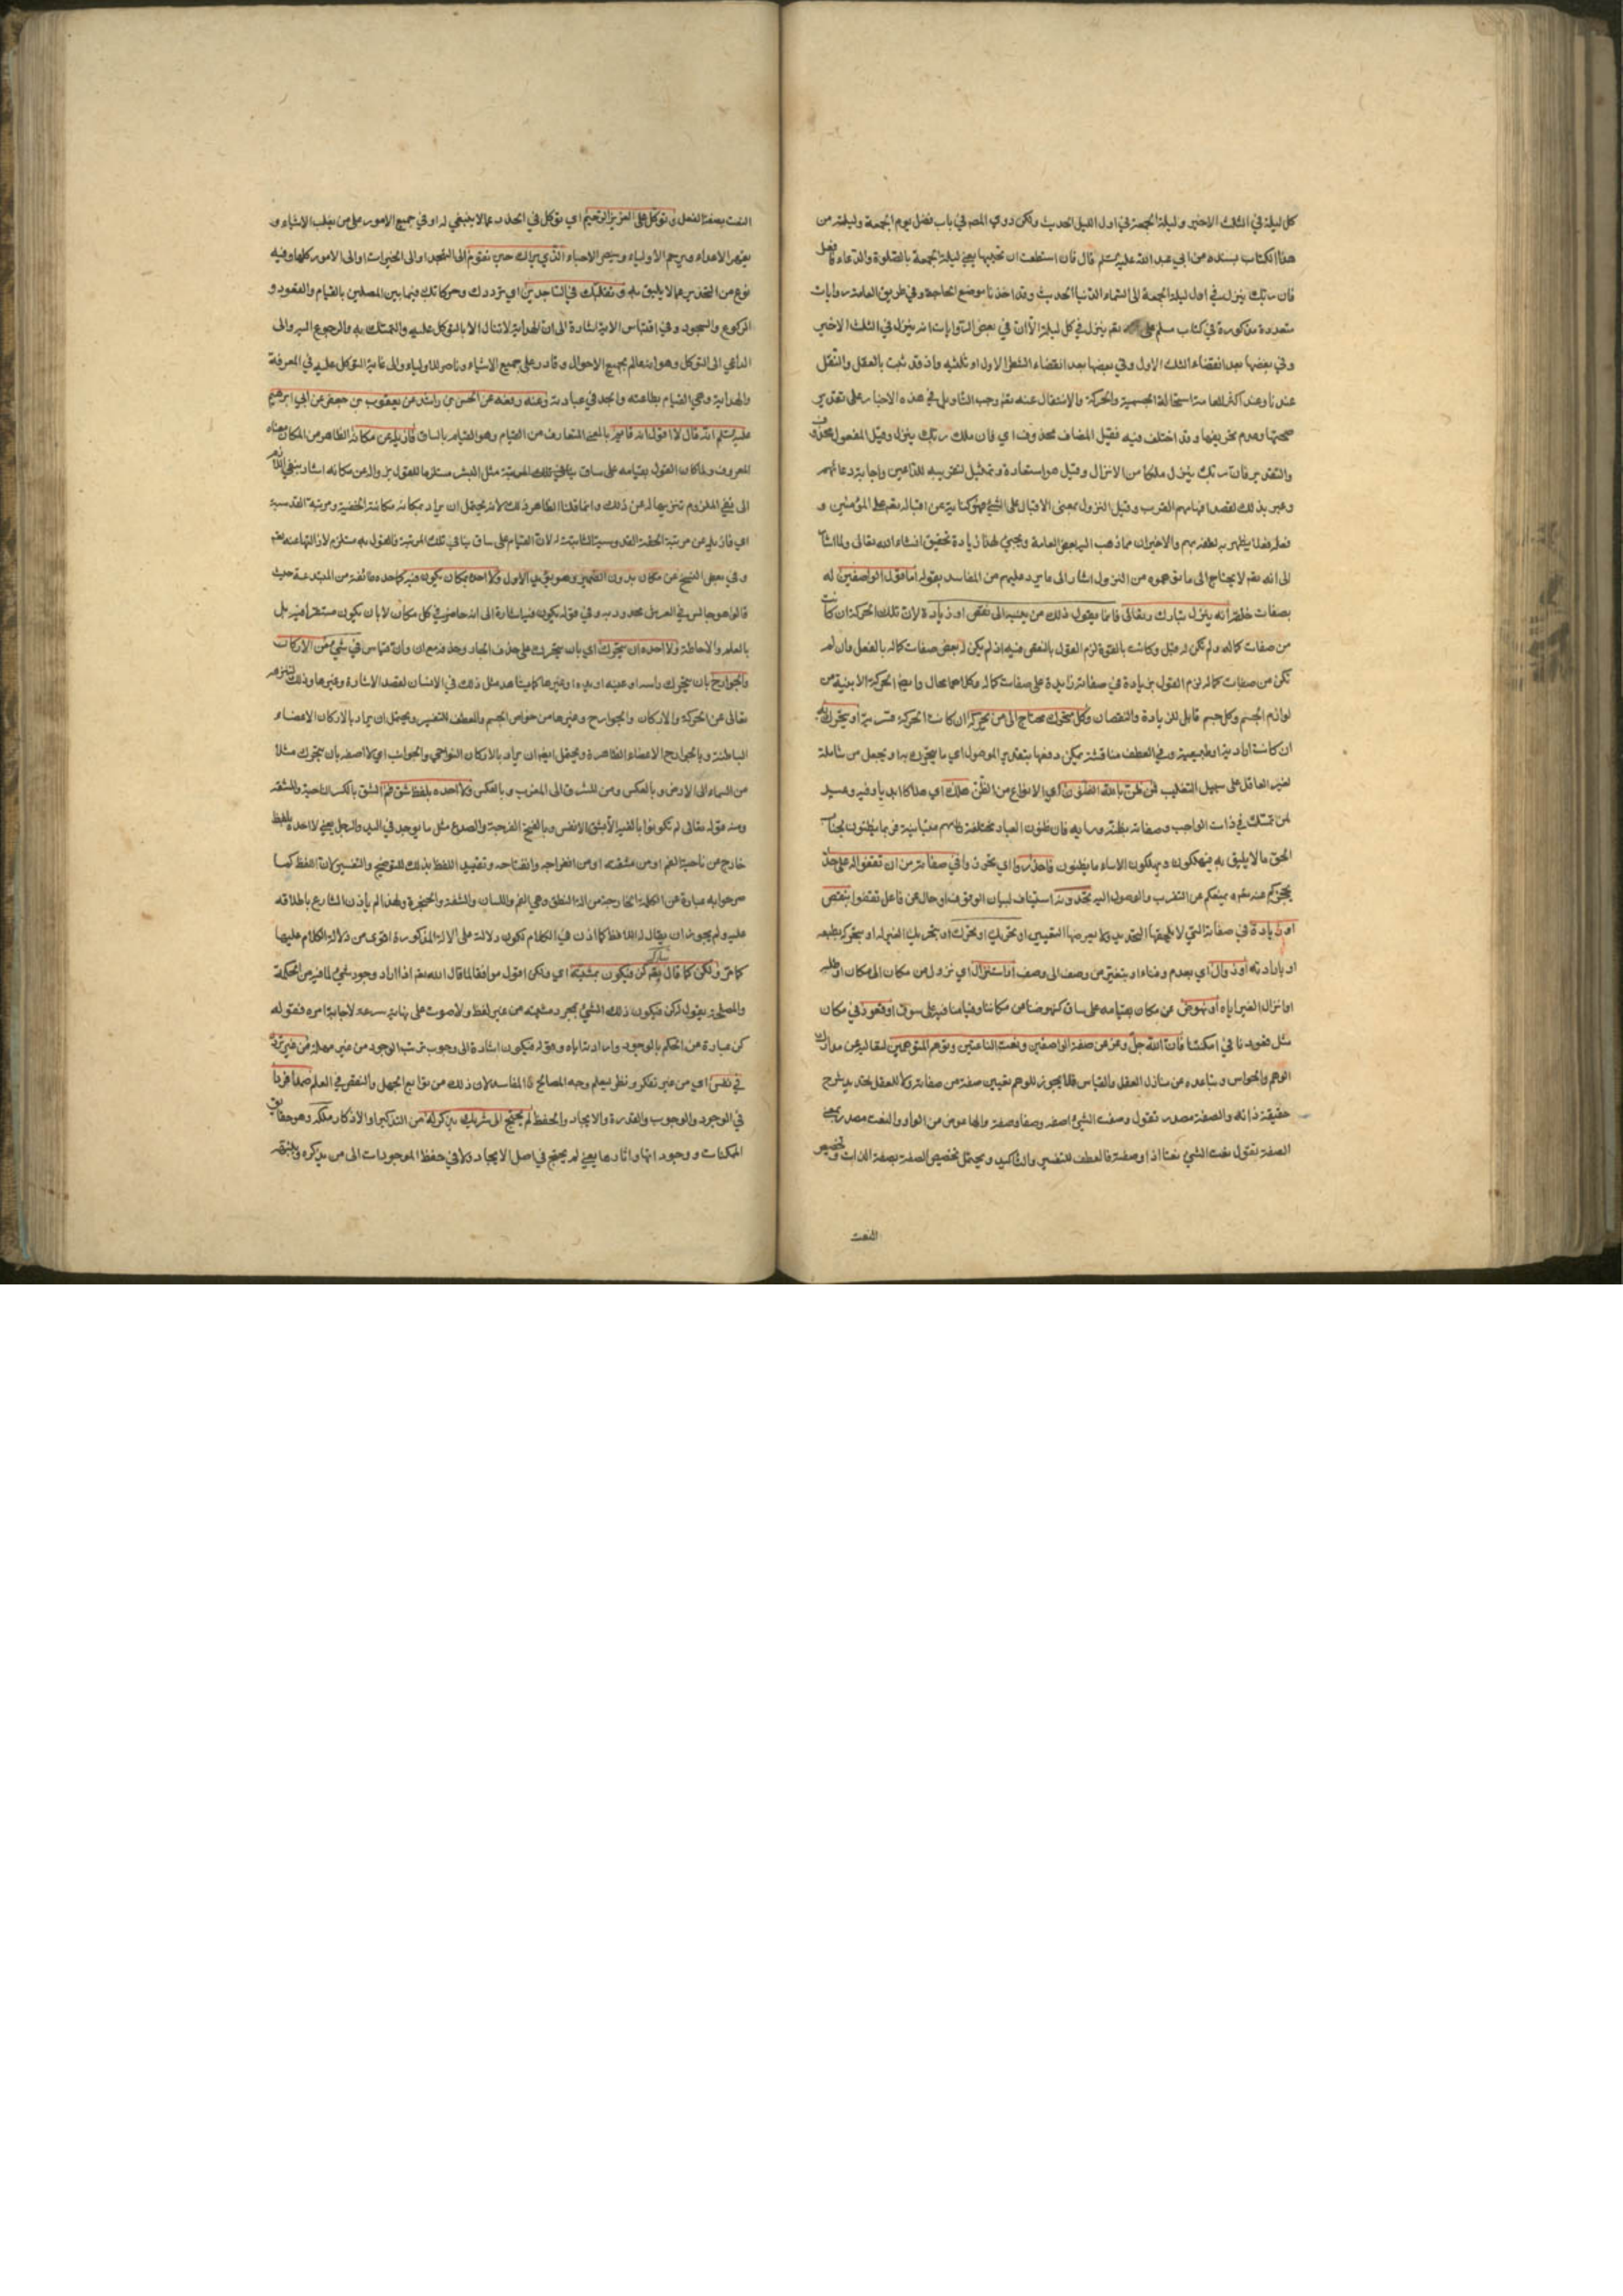 كل ليلة في الثلث الاخير وليلة الجمعة في اول الليل الحديث ولكن روي المص في باب فضل يوم الجمعة وليلته من
هذا الكتاب بسنده من ابي عبد الله عليه السلم قال فان استطعت ان تحييها يعني ليلة الجمعة بالصلوة والدعاء فافعل
فان ربك ينزل في اول ليلة الجمعة الى السماء الدنيا الحديث وقد اخذنا موضع الحاجة وفي طريق العامة روايات
متعددة مذكورة في كتاب مسلم على نعم ينزل في كل ليلة الا ان في بعض الروايات انه ينزل في الثلث الاخير
وفي بعضها بعد انقضاء الثلث الاول وفي بعضها بعد انقضاء الشطر الاول او ثلثيه واذ قد ثبت بالعقل والنقل
عندنا وعند اكثر العامة استحالة الجسمية والحركة والانتقال عنه تعم وجب التاويل في هذه الاخبار على تقدير
صحتها وعدم تحريفها وقد اختلف فيه فقيل المضاف محذوف اي فان ملك ربك ينزل وقيل المفعول محذوف
والتقدير فان ربك ينزل ملكا من الانزال وقيل هو استعارة وتمثيل لتقريبه للداعين واجابته دعائهم
وعبر بذلك لقصد افهامهم القرب وقيل النزول بمعنى الاقبال على الشيء فهو كناية عن اقباله تعم على المؤمنين و
فعله فعلا يظهر به لطفه بهم والاخيران مما ذهب اليه بعض العامة ويجيء لهذا زيادة تحقيق انشاء الله تعالى ولما اشار
الى انه تعم لا يحتاج الى ما توهموه من النزول اشار الى ما يرد عليهم من المفاسد بقوله اما قول الواصفين له
بصفات خلقه انه ينزل تبارك وتعالى فانما يقول ذلك من ينسبه الى نقص او زيادة لان تلك الحركة ان كانت
من صفات كماله ولم تكن له قبل وكانت بالقوة لزم القول بالنقص فيه اذ لم يكن له بعض صفات كماله بالفعل وان لم
تكن من صفات كماله لزم القول بزيادة في صفاته زايدة على صفات كماله وكلاهما محال وايضا الحركة الاينية من
لوازم الجسم وكل جسم قابل للزيادة والنقصان وكل متحرك محتاج الى من يحركه ان كانت الحركة قسرية او يتحرك به
ان كانت ارادية او طبيعية وفي العطف مناقشة يمكن دفعها بتقدير الموصول اي ما يتحرك به او يجعل من شاملة
لغير العاقل على سبيل التغليب فمن ظن بالله الظنون اي الانواع من الظن هلك اي هلاكا ابديا وفيه وعيد
لمن تمسك في ذات الواجب وصفاته بظنه ورايه فان ظنون العباد مختلفة
الحق ما لا يليق به فيهلكون ويهلكون الاساء ما يظنون فاحذروا اي تحرزوا في صفاته من ان تقفوا له على حد
يحجزكم عنه تعم ويمنعكم عن التقرب والوصول اليه تحدونه استيناف لبيان الوقوف او حال عن فاعل تقفوا بنقص
او زيادة في صفاته التي لا يلحقها التحديد ولا يعرضها التعيين او تحريك او تحرك او بتحريك الغير له او بتحركه بطبعه
او بارادته او زوال اي بعدم وفناء او بتغير من وصف الى وصف او استنزال اي نزول من مكان الى مكان
او انزال الغير اياه او نهوض عن مكان بقيامه على ساق كنهوضنا عن مكاننا وقيامنا فيه على سوق او قعود في مكان
مثل قعودنا في امكنتنا فان الله جل وعز عن صفة الواصفين ونعت الناعتين وتوهم المتوهمين لتعاليه عن مدارك
الوهم والحواس وتباعده من منازل العقل والقياس فلا يجوز للوهم تعيين صفة من صفاته ولا للعقل تحديد شرح
حقيقة ذاته والصفة مصدر تقول وصفت الشيء اصفه وصفا وصفة والهاء عوض من الواو والنعت مصدر بمعنى
الصفة تقول نعت الشيء نعتا اذا وصفته فالعطف للتفسير والتاكيد ويحتمل تخصيص الصفة بصفة الذات وتخصيص
النعت
النعت بصفة الفعل وتوكل على العزيز الرحيم اي توكل في الحذر عما لا ينبغي له او في جميع الامور على من يغلب الاشياء و
يقهر الاعداء ويرحم الاولياء وينصر الاحباء الذي يراك حين تقوم الى التهجد او الى الخيرات او الى الامور كلها وفيه
نوع من التحذير عما لا يليق به وتقلبك في الساجدين اي ترددك وحركاتك فيما بين المصلين بالقيام والقعود و
الركوع والسجود وفي اقتباس الاية اشارة الى ان الهداية لا تنال الا بالتوكل عليه والتمسك به والرجوع اليه والى
الداعي الى التوكل وهو انه عالم بجميع الاحوال وقادر على جميع الاشياء وناصر للاولياء والى غاية التوكل عليه في المعرفة
والهداية وهي القيام بطاعته والجد في عبادته وعنه رفعه عن الحسن بن راشد عن يعقوب بن جعفر عن ابي ابرهيم
عليه السلم انه قال لا اقول انه قائم بالمعنى المتعارف من القيام وهو القيام بالساق فازيله عن مكانه الظاهر من المكان معناه
المعروف ولما كان القول بقيامه على ساق ينافي تلك المرتبة مثل البشر مستلزما للقول بزواله عن مكانه اشار بنفي اللازم
الى نفي الملزوم تنزيها له عن ذلك وانما قلنا الظاهر ذلك لانه يحتمل ان يراد بمكانه مكانته الخفية ومرتبة القدسية
اي فازيله عن مرتبة الحقة القدوسية الثابتة له لان القيام على ساق ينافي تلك المرتبة فالقول به مستلزم لازالتها عنه تعم
وفي بعض النسخ عن مكان بدون الضمير وهو يؤيد الاول ولا احده بمكان يكون فيه كما حده طائفة من المبتدعة حيث
قالوا هو جالس في العرش محدود به وفي قوله يكون فيه اشارة الى انه حاضر في كل مكان لا بان يكون مستقرا فيه بل
بالعلم والاحاطة ولا احده ان يتحرك اي بان يتحرك على حذف الجار وحذفه مع ان وان قياس في شيء من الاركان
والجوارح بان يتحرك راسه او عينه او يده او غيرها كما يشاهد مثل ذلك في الانسان لقصد الاشارة وغيرها وذلك لتنزهه
تعالى عن الحركة والاركان والجوارح وغيرها من خواص الجسم والعطف للتفسير ويحتمل ان يراد بالاركان الاعضاء
الباطنة وبالجوارح الاعضاء الظاهرة ويحتمل ايضا ان يراد بالاركان النواحي والجوانب اي لا اصفه بان يتحرك مثلا
من السماء الى الارض وبالعكس ومن المشرق الى المغرب وبالعكس ولا احده بلفظ شق فم الشق بالكسر الناحية والمشقة
ومنه قوله تعالى لم تكونوا بالغيه الا بشق الانفس وبالفتح الفرجة والصدع مثل ما يوجد في اليد والرجل يعني لا احده بلفظ
خارج عن ناحية الفم او من مشقته او من انفراجه وانفتاحه وتقييد اللفظ بذلك للتوضيح والتفسير لان اللفظ كما
صرحوا به عبارة عن الكلمة الخارجة من الة النطق وهي الفم واللسان والشفة والحنجرة ولهذا لم ياذن الشارع باطلاقه
عليه ولم يجوز ان يقال له اللافظ كما اذن في الكلام لكون دلالته على الالة المذكورة اقوى من دلالة الكلام عليها
كما مر ولكن كما قال تعم كن فيكون بمشيته اي ولكن اقول موافقا لما قال الله تعم اذا اراد وجود شيء لما فيه من الحكمة
والمصلحة يقول له كن فيكون ذلك الشيء بمجرد مشيته من غير لفظ ولا صوت على نهاية سرعة لاجابة امره فقوله
كن عبارة عن الحكم بالوجود وارادته اياه وقوله فيكون اشارة الى وجوب ترتب الوجود من غير مهلة من غير تردد
في نفس اي من غير تفكر ونظر يعلم وجه المصالح والمفاسد لان ذلك من توابع الجهل والنقص في العلم صمدا فردا
في الوجود والوجوب والقدرة والايجاد والحفظ لم يحتج الى شريك يذكر له من التذكير او الاذكار ملكه وهو حقايق
الممكنات ووجوداتها واثارها يعني لم يحتج في اصل الايجاد ولا في حفظ الموجودات الى من يذكره